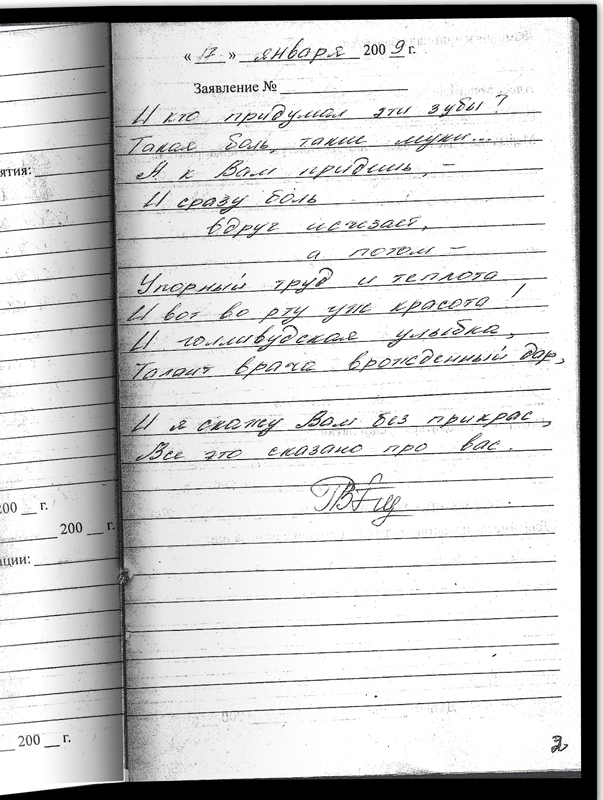 « 17 » января 2009 г.
Заявление №
И кто придумал эти зубы?
Такая боль, такие муки...
А к Вам придешь, –
И сразу боль
вдруг исчезает,
а потом –
Упорный труд и теплота
И вот во рту уж красота!
И голливудская улыбка,
Талант врача врожденный дар,
И я скажу Вам без прикрас,
Все это сказано про вас.
ятия:
200 г.
200 г.
ации:
200 г.